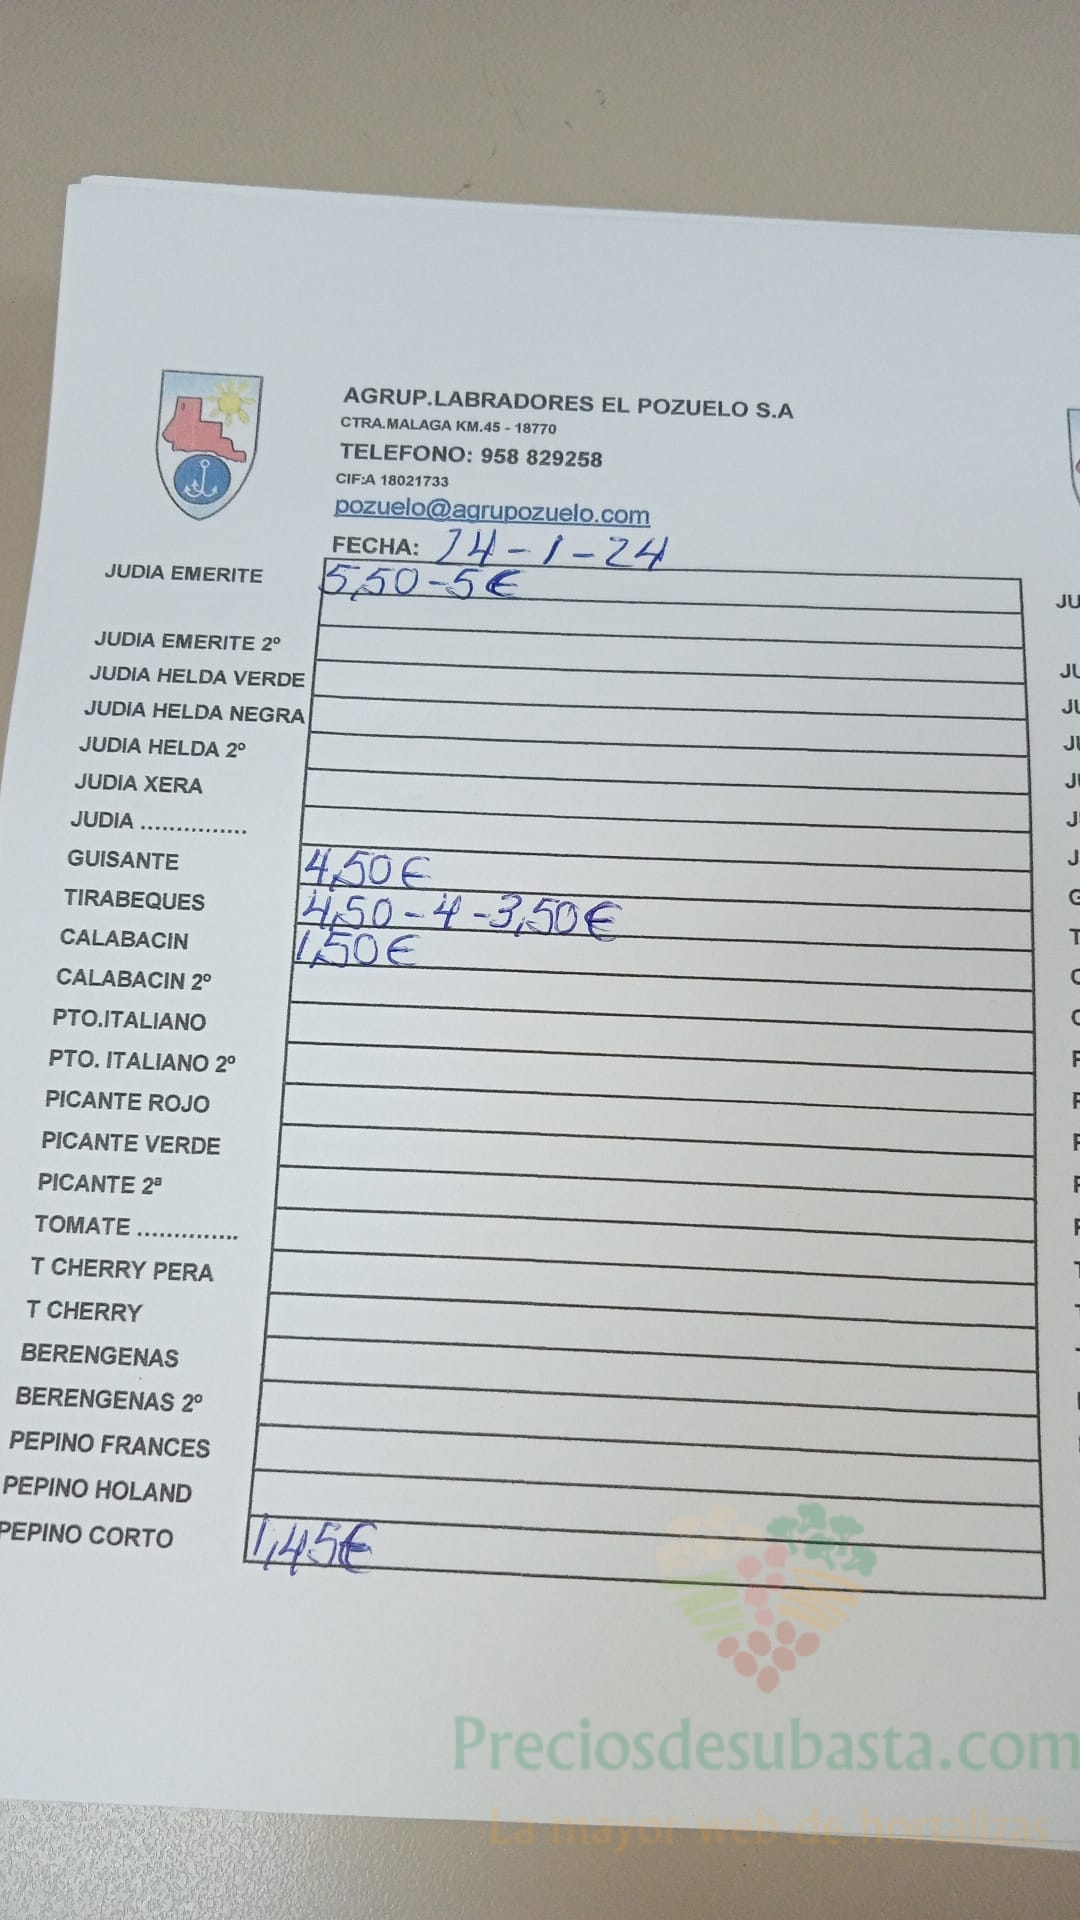 AGRUP.LABRADORES EL POZUELO S.A
CTRA.MALAGA KM.45 - 18770
TELEFONO: 958 829258
CIF:A 18021733
pozuelo@agrupozuelo.com
FECHA: 24-1-24
JUDIA EMERITE 5,50-5€
JUDIA EMERITE 2º
JUDIA HELDA VERDE
JUDIA HELDA NEGRA
JUDIA HELDA 2º
JUDIA XERA
JUDIA ...............
GUISANTE 4,50€
TIRABEQUES 4,50-4-3,50€
CALABACIN 1,50€
CALABACIN 2º
PTO.ITALIANO
PTO. ITALIANO 2º
PICANTE ROJO
PICANTE VERDE
PICANTE 2ª
TOMATE ..............
T CHERRY PERA
T CHERRY
BERENGENAS
BERENGENAS 2º
PEPINO FRANCES
PEPINO HOLAND
PEPINO CORTO 1,45€
Preciosdesubasta.com
La mayor web de hortalizas